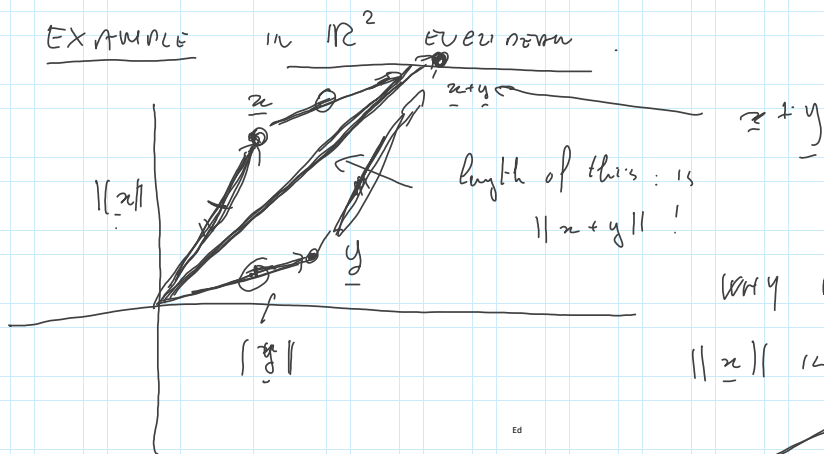 EXAMPLE IN ℝ² EUCLIDEAN.
x
x+y
x + y
||x||
length of this: is
||x + y|| !
y
WHY
||y||
||x|| is
Ed